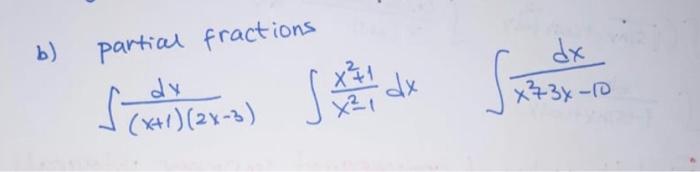 b) partial fractions
∫ dx / (x+1)(2x-3)   ∫ x²+1 / x²-1 dx   ∫ dx / x²+3x-10